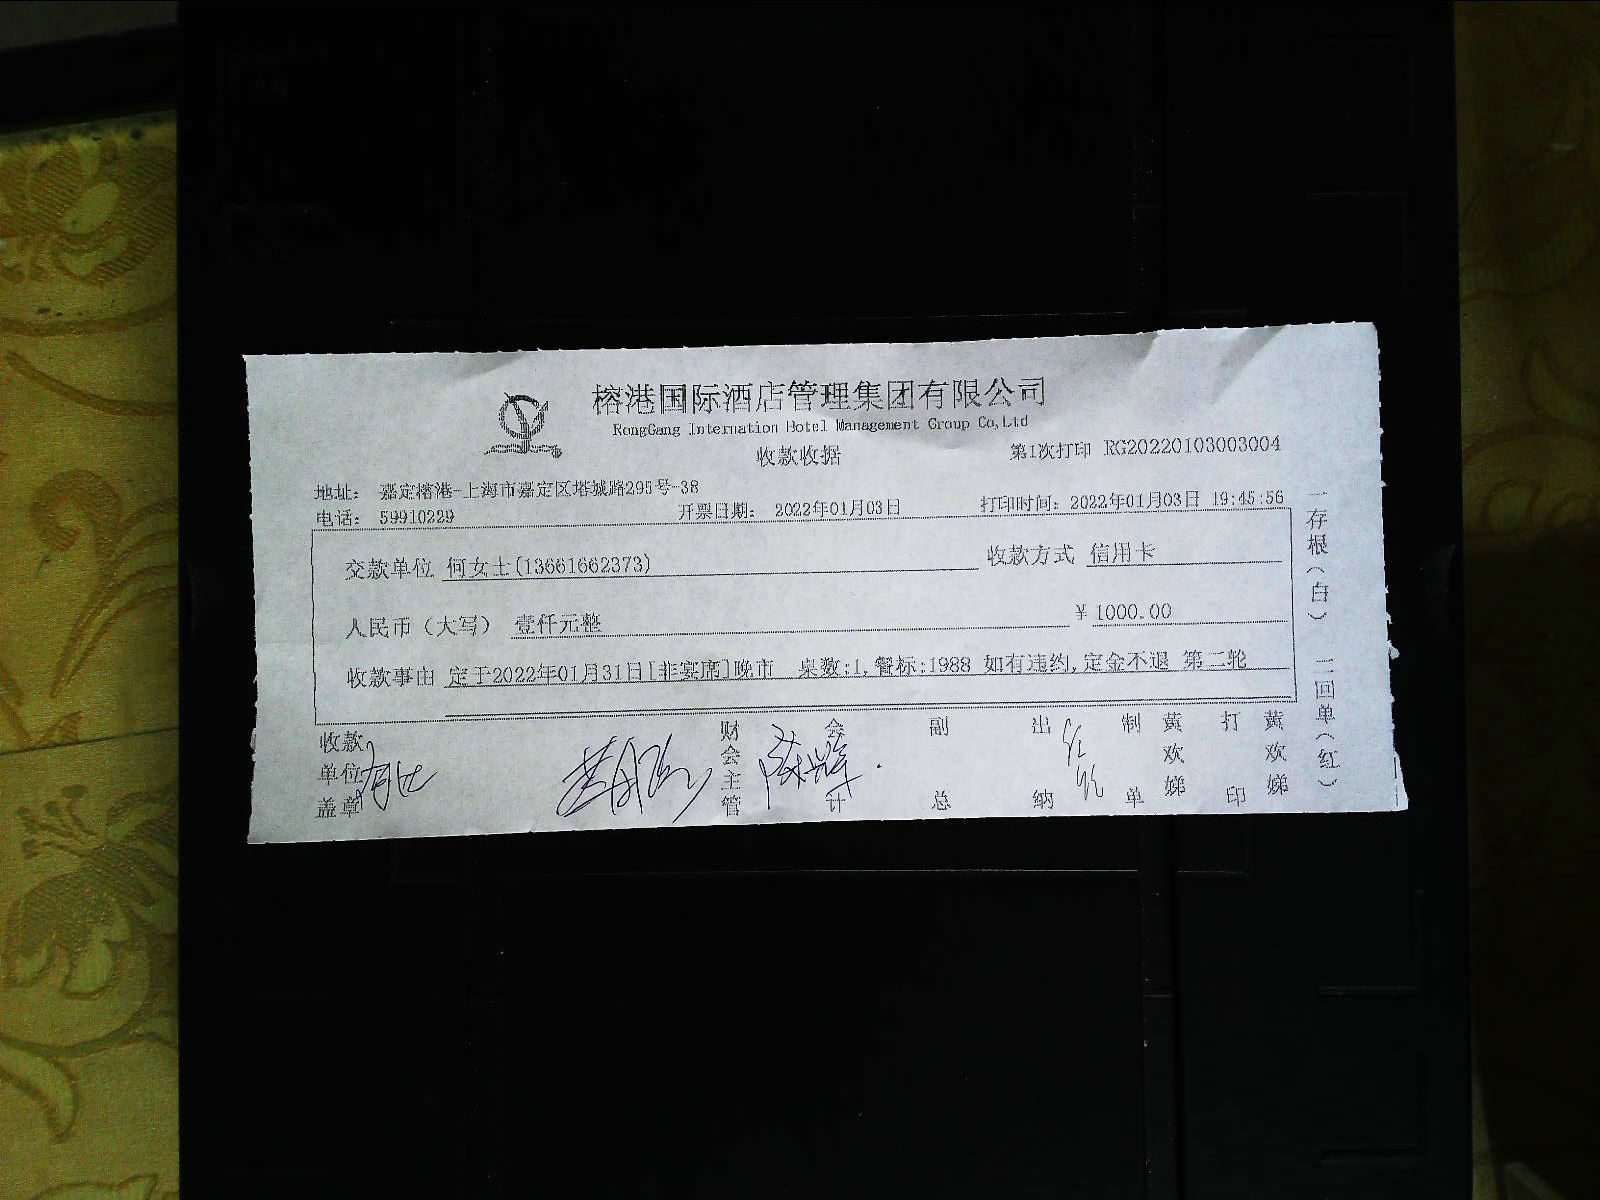 榕港国际酒店管理集团有限公司
RongGang Internation Hotel Management Group Co,Ltd
收款收据
第1次打印 RG20220103003004
地址： 嘉定榕港-上海市嘉定区塔城路295号-38
电话： 59910229 开票日期： 2022年01月03日 打印时间：2022年01月03日 19:45:56
交款单位 何女士(13661662373) 收款方式 信用卡
人民币（大写） 壹仟元整 ￥1000.00
收款事由 定于2022年01月31日[非宴席]晚市 桌数:1,餐标:1988 如有违约,定金不退 第二轮
收款单位盖章
财会主管
会计
副总
出纳
制单 黄欢娣
打印 黄欢娣
一存根（白） 二回单（红）